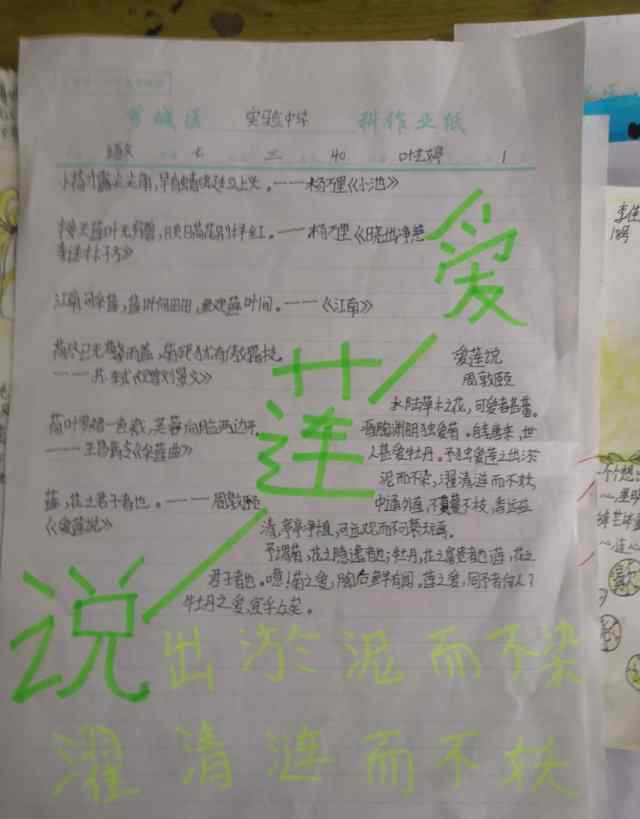 实验中学 科作业纸
语文 七 三 40 叶 1
小荷才露尖尖角,早有蜻蜓立上头。——杨万里《小池》
接天莲叶无穷碧,映日荷花别样红。——杨万里《晓出净慈
寺送林子方》
江南可采莲,莲叶何田田,鱼戏莲叶间。——《江南》
荷尽已无擎雨盖,菊残犹有傲霜枝。
——苏轼《赠刘景文》
荷叶罗裙一色裁,芙蓉向脸两边开。
——王昌龄《采莲曲》
莲,花之君子者也。——周敦颐
《爱莲说》
爱
莲
说
爱莲说
周敦颐
水陆草木之花,可爱者甚蕃。
晋陶渊明独爱菊。自李唐来,世
人甚爱牡丹。予独爱莲之出淤
泥而不染,濯清涟而不妖,
中通外直,不蔓不枝,香远益
清,亭亭净植,可远观而不可亵玩焉。
予谓菊,花之隐逸者也;牡丹,花之富贵者也;莲,花之
君子者也。噫!菊之爱,陶后鲜有闻。莲之爱,同予者何人?
牡丹之爱,宜乎众矣。
出淤泥而不染
濯清涟而不妖